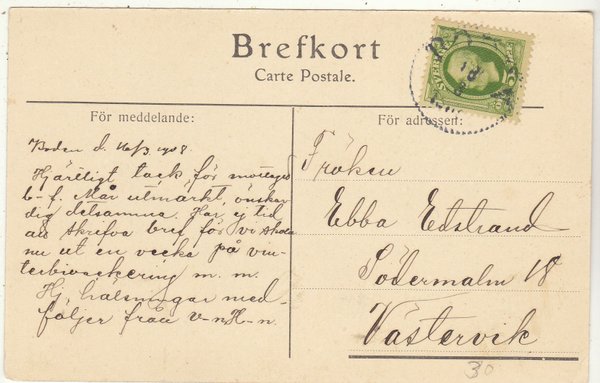 Brefkort
Carte Postale.
För meddelande:
För adressen:
Boden d. 1908.
Hjärtligt tack för mottaget
b-f. Mår utmärkt, önskar
dig detsamma. Har ej tid
att skrifva bref för vi skola
nu ut en vecka på vin-
terbivackering m. m.
Hj. hälsningar med-
följer från V-n H-n.
Fröken
Ebba Edstrand
Södermalm 18
Västervik
30